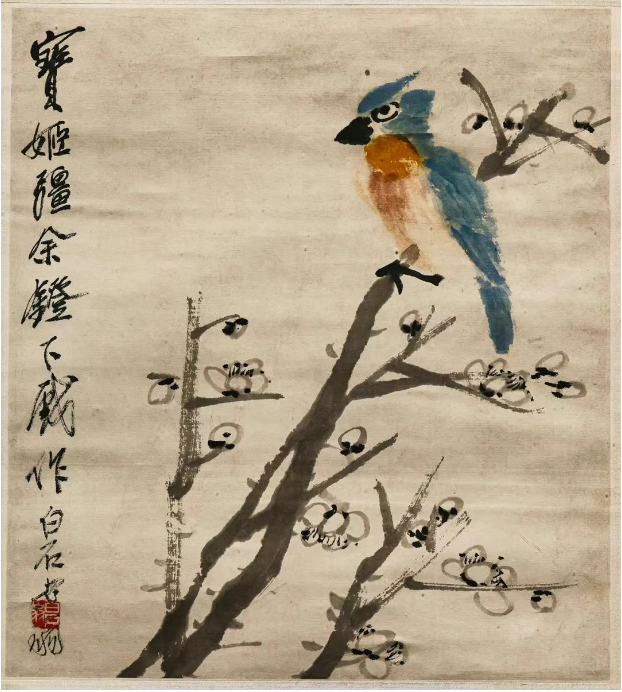 寶姬彊余鐙下戲作白石